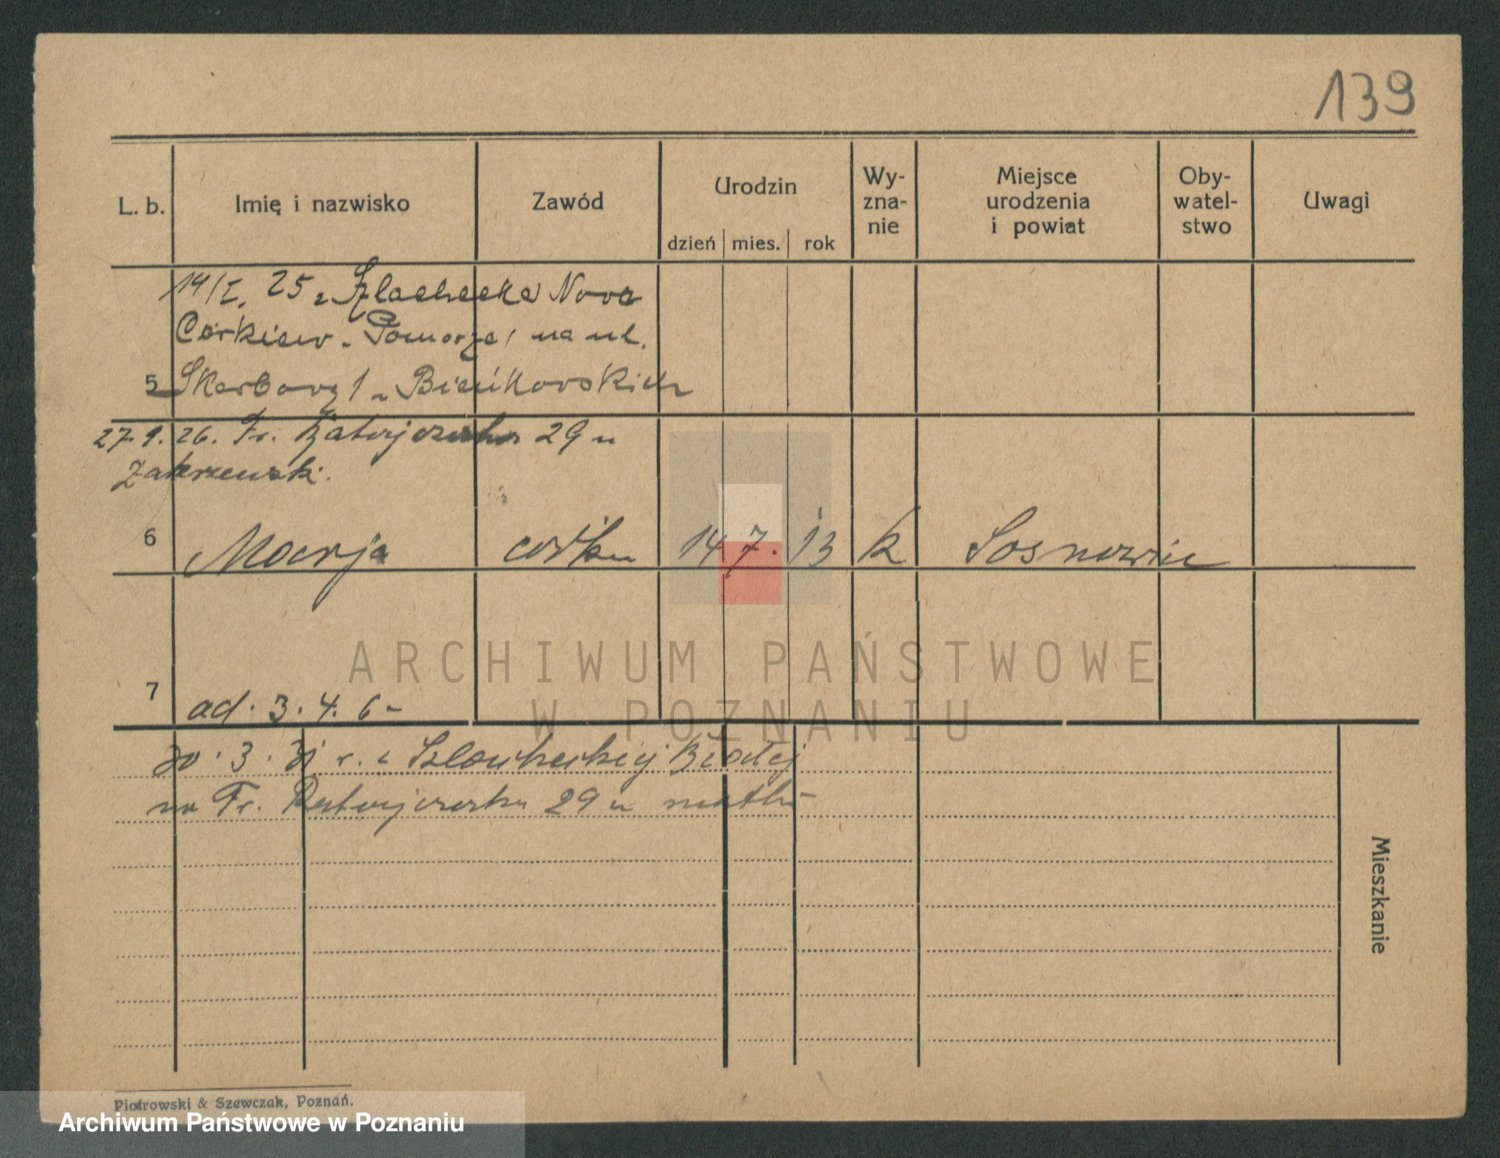 139
L. b. Imię i nazwisko Zawód Urodzin Wy-zna-nie Miejsce urodzenia i powiat Oby-watel-stwo Uwagi
dzień mies. rok
14/I. 25 z Szlachecka Nova
Cerkiew - Pomorze / na ul.
5 Skarbowa 1 u Bieńkovskich
27.9.26. Fr. Ratajczaka 29 u
Zakrzewski.
6 Marja córka 14 7. 13 k Sosnowiec
7 ad. 3. 4. 6 -
30. 3. 31 r. z Szlacheckiej Białej
na Fr. Ratajczaka 29 u matki
Mieszkanie
ARCHIWUM PAŃSTWOWE
W POZNANIU
Piotrowski & Szewczak, Poznań.
Archiwum Państwowe w Poznaniu